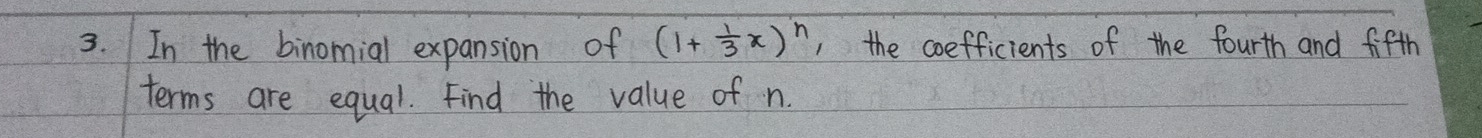 3. In the binomial expansion of (1+ 1/3 x)^n, the coefficients of the fourth and fifth
terms are equal. Find the value of n.